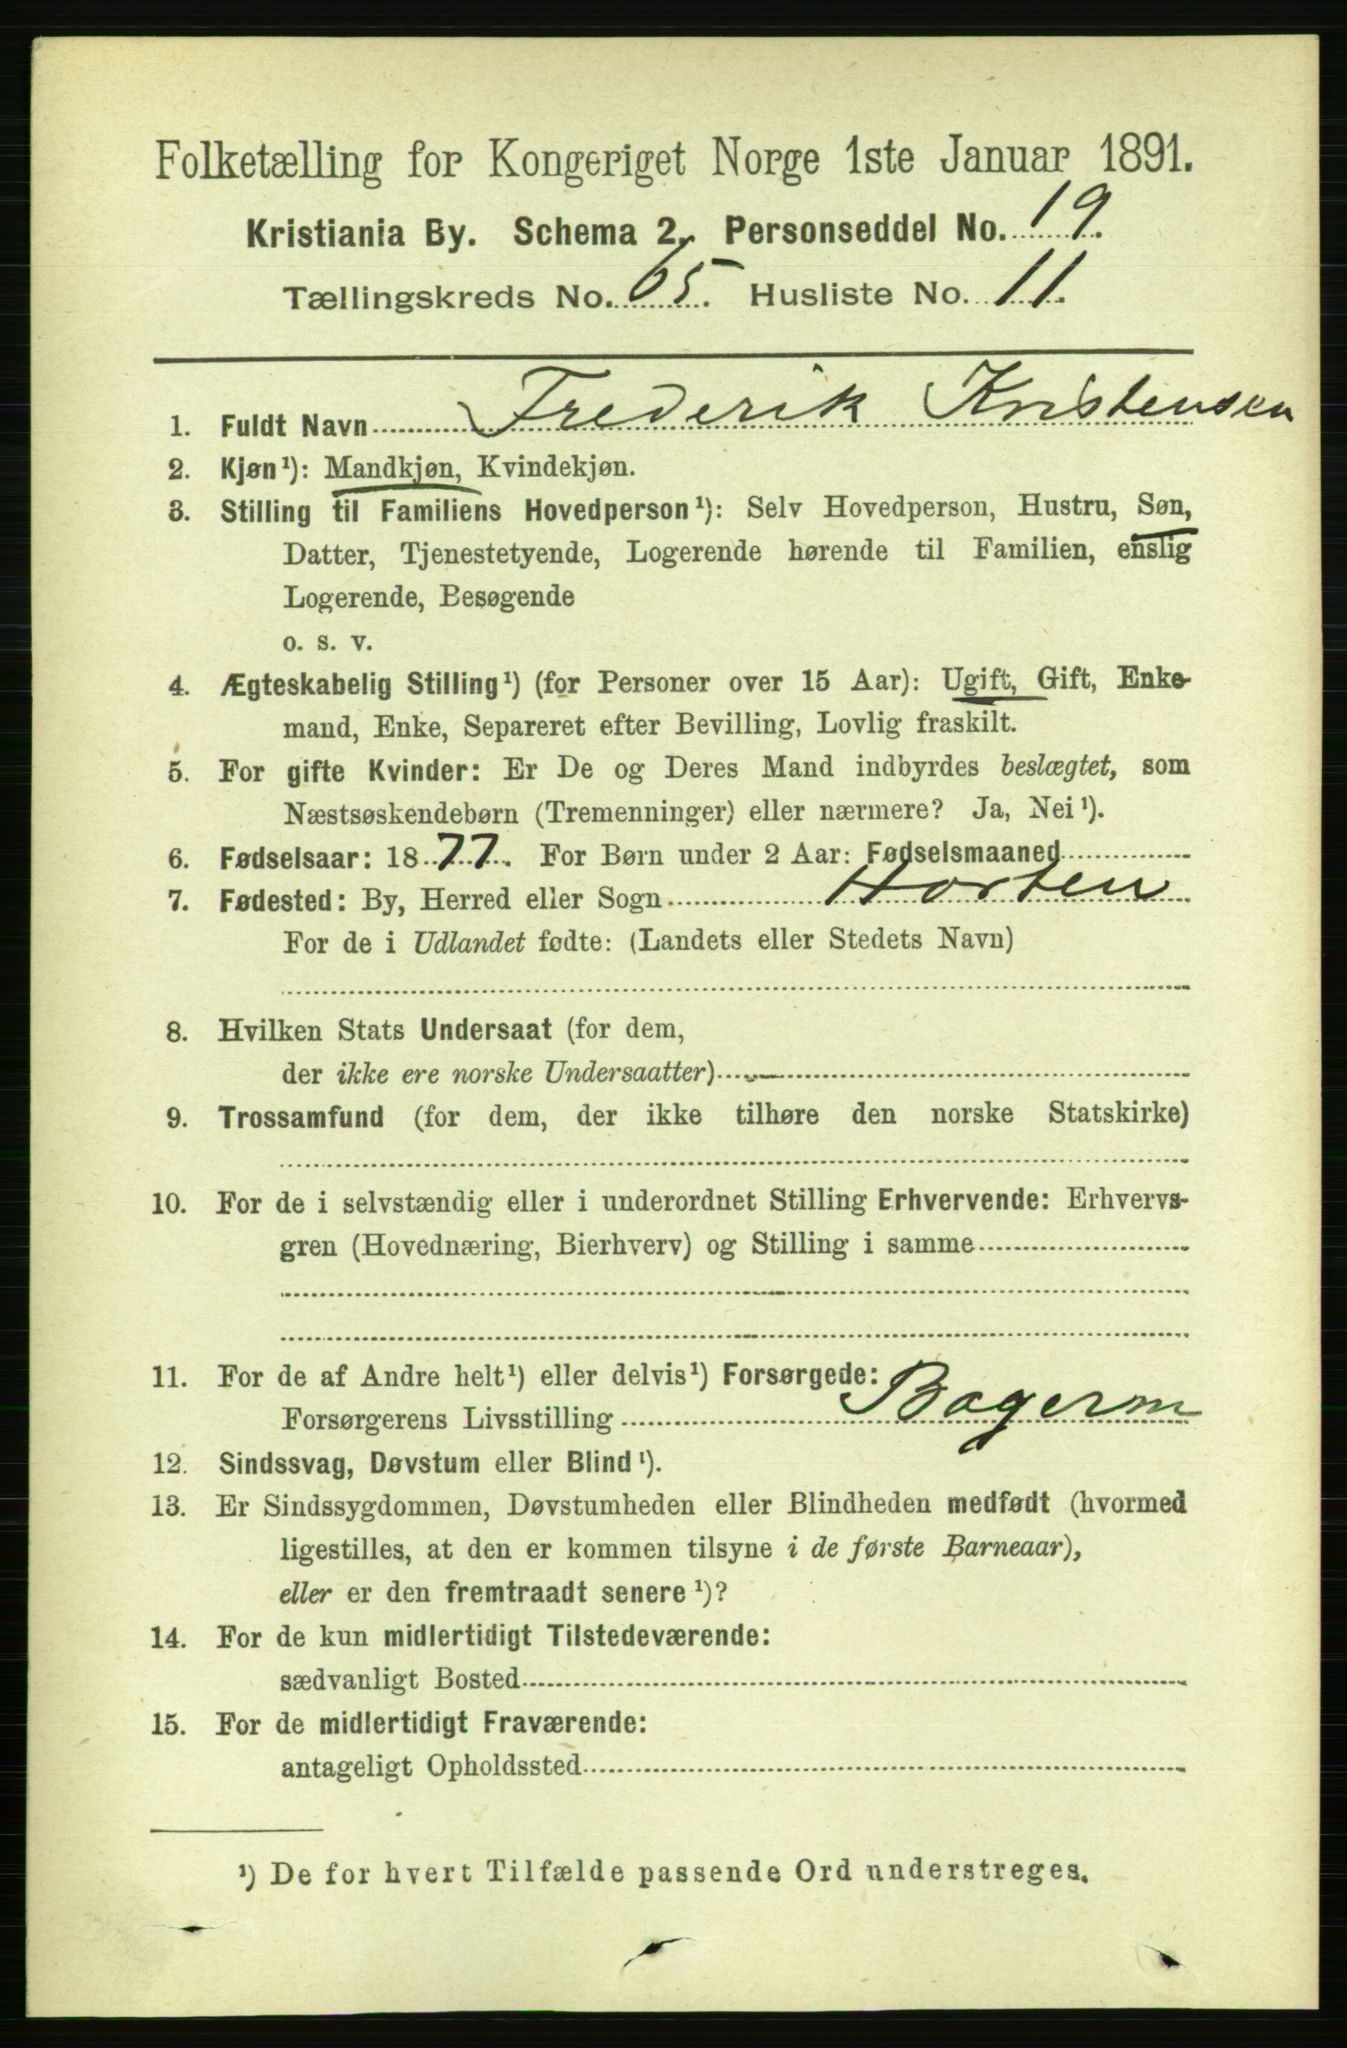 Folketælling for Kongeriget Norge 1ste Januar 1891.
Kristiania By. Schema 2. Personseddel No. 19.
Tællingskreds No. 65. Husliste No. 11.
1. Fuldt Navn Frederik Kristensen
2. Kjøn¹): Mandkjøn, Kvindekjøn.
3. Stilling til Familiens Hovedperson¹): Selv Hovedperson, Hustru, Søn,
Datter, Tjenestetyende, Logerende hørende til Familien, enslig
Logerende, Besøgende
o. s. v.
4. Ægteskabelig Stilling¹) (for Personer over 15 Aar): Ugift, Gift, Enke-
mand, Enke, Separeret efter Bevilling, Lovlig fraskilt.
5. For gifte Kvinder: Er De og Deres Mand indbyrdes beslægtet, som
Næstsøskendebørn (Tremenninger) eller nærmere? Ja, Nei¹).
6. Fødselsaar: 1877. For Børn under 2 Aar: Fødselsmaaned
7. Fødested: By, Herred eller Sogn Horten
For de i Udlandet fødte: (Landets eller Stedets Navn)
8. Hvilken Stats Undersaat (for dem,
der ikke ere norske Undersaatter)
9. Trossamfund (for dem, der ikke tilhøre den norske Statskirke)
10. For de i selvstændig eller i underordnet Stilling Erhvervende: Erhvervs-
gren (Hovednæring, Bierhverv) og Stilling i samme
11. For de af Andre helt¹) eller delvis¹) Forsørgede:
Forsørgerens Livsstilling Bagerm
12. Sindssvag, Døvstum eller Blind¹).
13. Er Sindssygdommen, Døvstumheden eller Blindheden medfødt (hvormed
ligestilles, at den er kommen tilsyne i de første Barneaar),
eller er den fremtraadt senere¹)?
14. For de kun midlertidigt Tilstedeværende:
sædvanligt Bosted
15. For de midlertidigt Fraværende:
antageligt Opholdssted
¹) De for hvert Tilfælde passende Ord understreges.